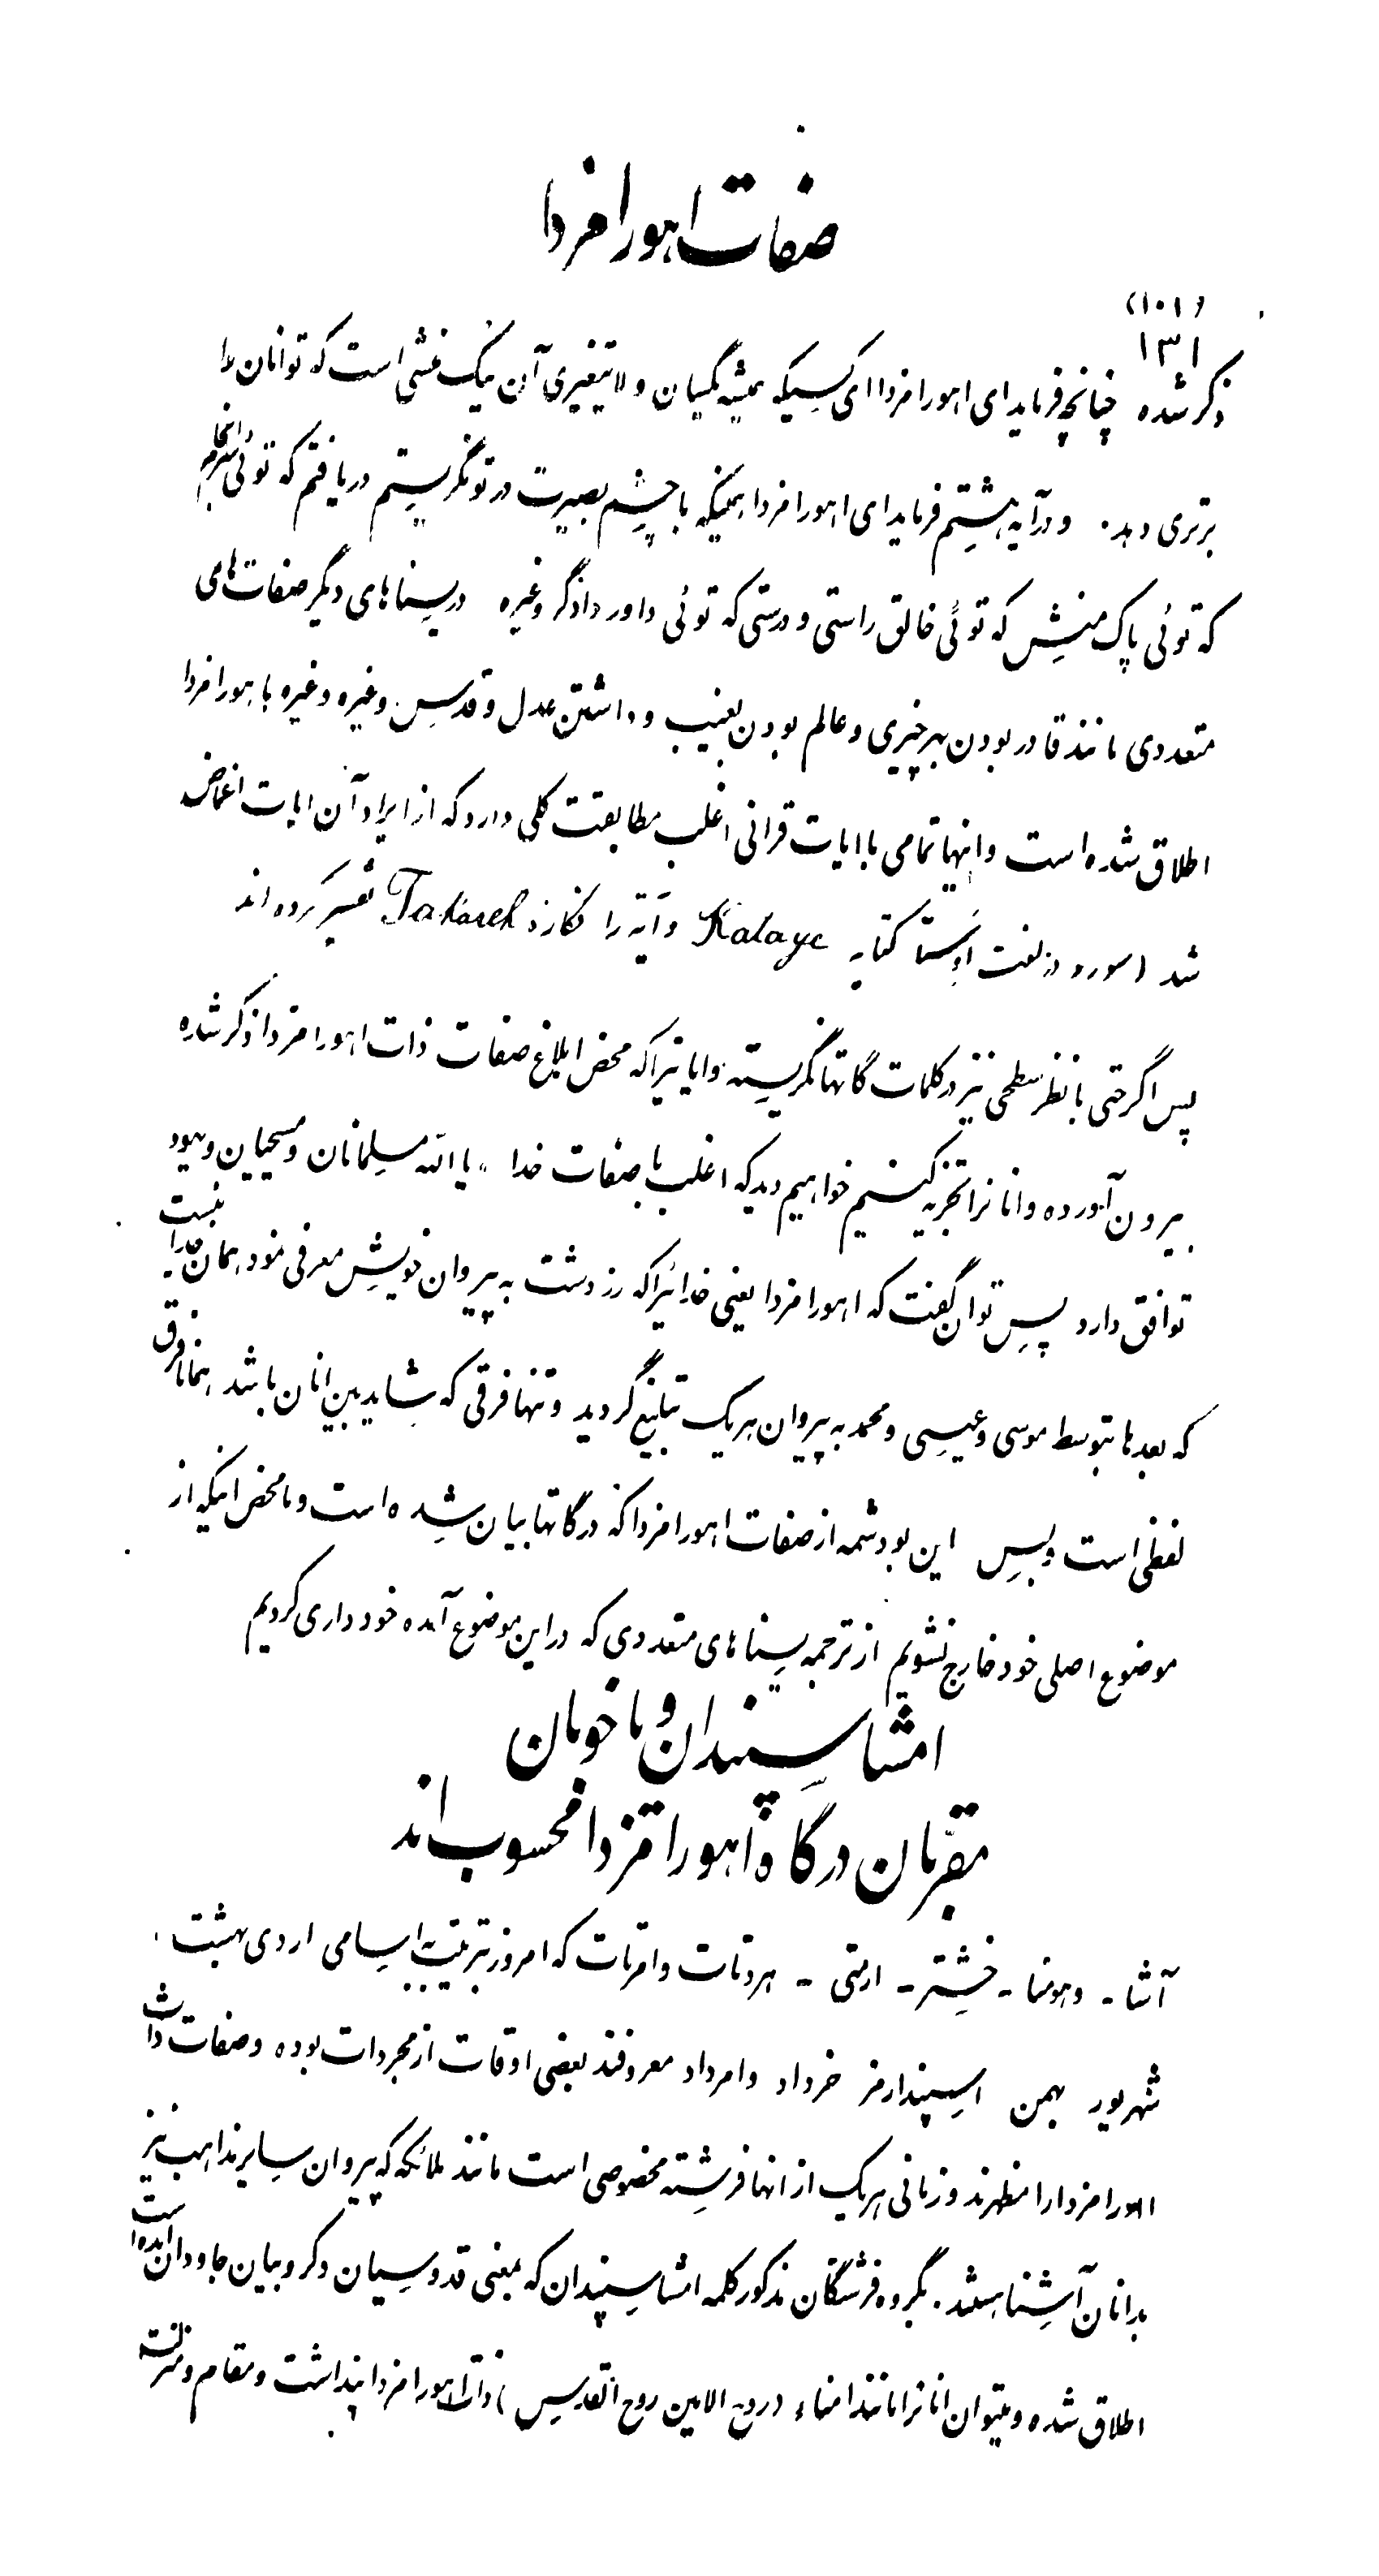 صفات اهورامزدا
(۱۰۱)
۱۳۱
ذکر شده چنانچه فرماید ای اهورامزدا ای کسیکه همیشه یکسان و لایتغیری آن نیک منشی است که توانان را
برتری دهد. و درآیه هشتم فرماید ای اهورامزدا همینکه با چشم بصیرت در تو نگریستم دریافتم که توئی سرانجام
که توئی پاک منش که توئی خالق راستی و درستی که توئی داور دادگر و غیره در یسناهای دیگر صفات های
متعددی مانند قادر بودن بهرچیزی و عالم بودن بغیب و داشتن عدل و قدس وغیره وغیره باهورامزدا
اطلاق شده است و اینها تمامی با ایات قرانی اغلب مطابقت کلی دارد که از ایراد آن ایات اغماض
شد (سوره در لغت اوستا کتایه Kataye و آیه را تکاره Takareh تفسیر کرده اند
پس اگر حتی با نظر سطحی نیز در کلمات گاتها نگریسته وایاتیرا که محض ابلاغ صفات ذات اهورامزدا ذکر شده
بیرون آورده وانانرا تجزیه کنیم خواهیم دید که اغلب با صفات خدا یا الله مسلمانان و مسیحیان و یهود
توافق دارد پس توان گفت که اهورامزدا یعنی خدائیرا که زردشت به پیروان خویش معرفی نمود همان خدا نیست
که بعدها بتوسط موسی و عیسی و محمد به پیروان هریک تبلیغ گردید و تنها فرقی که شاید بین انان باشد همانا فرق
لفظی است و بس این بود شمه از صفات اهورامزدا که در گاتها بیان شده است و ما محض اینکه از
موضوع اصلی خود خارج نشویم از ترجمه یسناهای متعددی که دراین موضوع آمده خودداری کردیم
امشاسپندان و یا خوبان
مقربان درگاه اهورامزدا محسوب اند
آشا - وهومنا - خشتر - ارمتی - هردتات وامرتات که امروز بترتیب به اسامی اردی بهشت
شهریور بهمن اسپندارمز خرداد وامرداد معروفند بعضی اوقات از مجردات بوده وصفات ذات
اهورامزدا را مظهرند و زمانی هریک از انها فرشته مخصوصی است مانند ملائکه که پیروان سایر مذاهب نیز
بدانان آشنا هستند. بگروه فرشتگان مذکور کلمه امشاسپندان که بمعنی قدوسیان و کروبیان جاودان امده است
اطلاق شده و میتوان انانرا مانند امناء (روح الامین روح القدس) ذات اهورامزدا پنداشت و مقام و منزلت